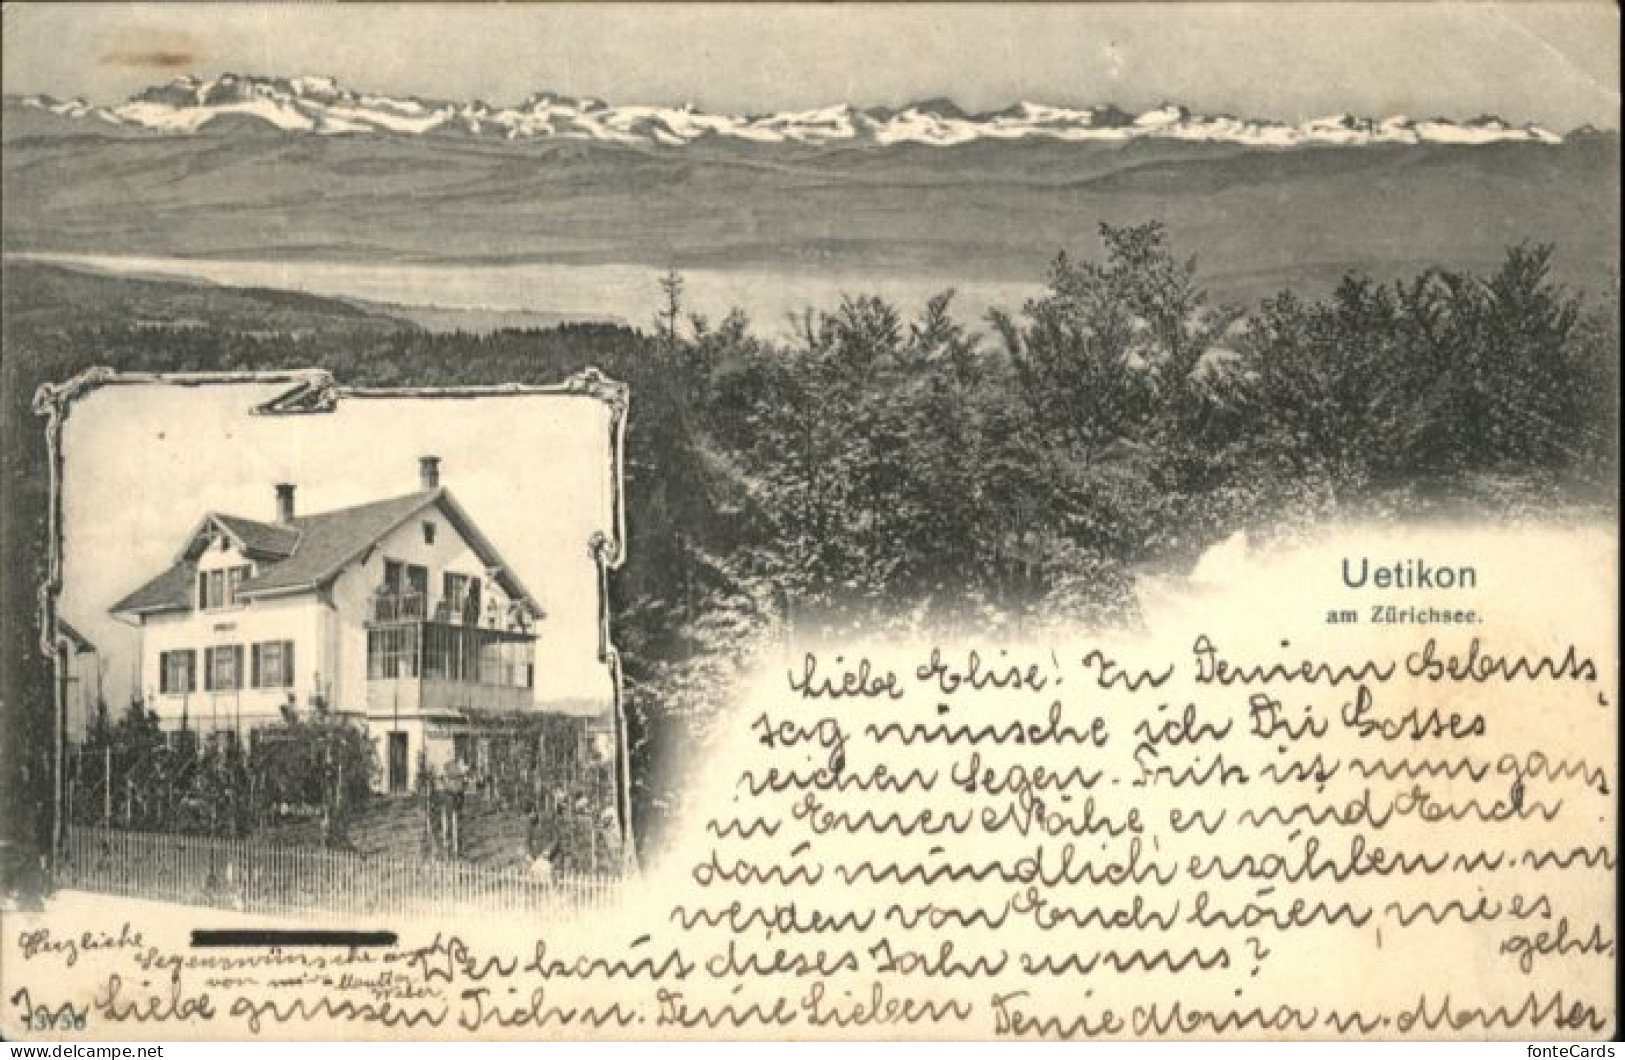 Uetikon
am Zürichsee.
Liebe Elise! Zu Deinem Geburts
tag wünsche ich Dir Gottes
reichen Segen. Fritz ist nun ganz
in Eurer Nähe, er wird Euch
dann mündlich erzählen u. wir
werden von Euch hören, wie es
geht.
Wer kommt dieses Jahr zu uns?
Herzliche
Segenswünsche auch
von mir
In Liebe grüssen Dich u. Deine Lieben Deine Mina u. Mutter
13756
fonteCards
delcampe.net